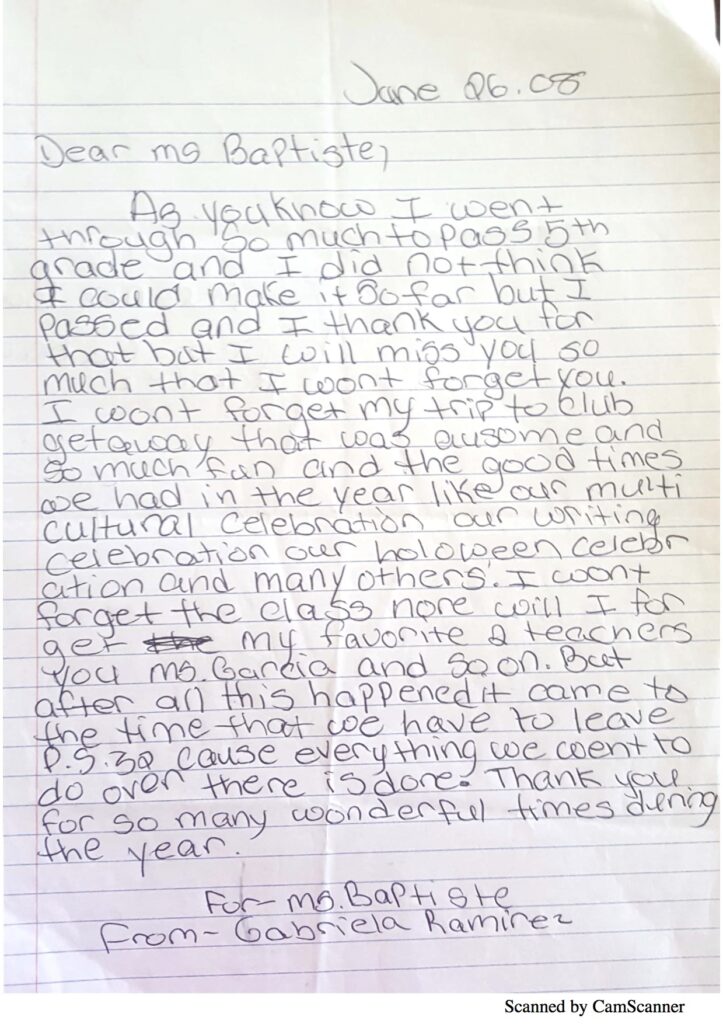 June 26.08
Dear ms Baptiste,
As you know I went
through so much to pass 5th
grade and I did not think
I could make it so far but I
passed and I thank you for
that but I will miss you so
much that I wont forget you.
I wont forget my trip to club
getaway that was ausome and
so much fun and the good times
we had in the year like our multi
cultural celebration our writing
celebration our holoween celebr
ation and many others. I wont
forget the class nore will I for
get my favorite 2 teachers
you ms.Garcia and so on. But
after all this happened it came to
the time that we have to leave
P.S.32 cause everything we went to
do over there is done. Thank you
for so many wonderful times dering
the year.
For- ms.Baptiste
From- Gabriela Ramirez
Scanned by CamScanner